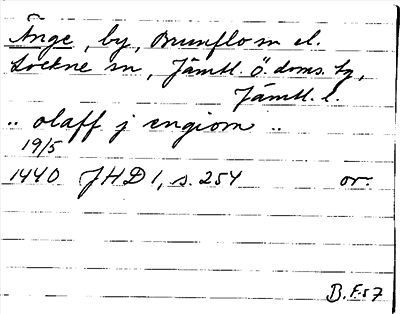 Änge, by, Brunflo sn el.
Lockne sn, Jämtl. ö. doms. tg,
Jämtl. l.
.. olaff j engiom ..
19/5
1440 JHD 1, s. 254 or.
B.F. 57